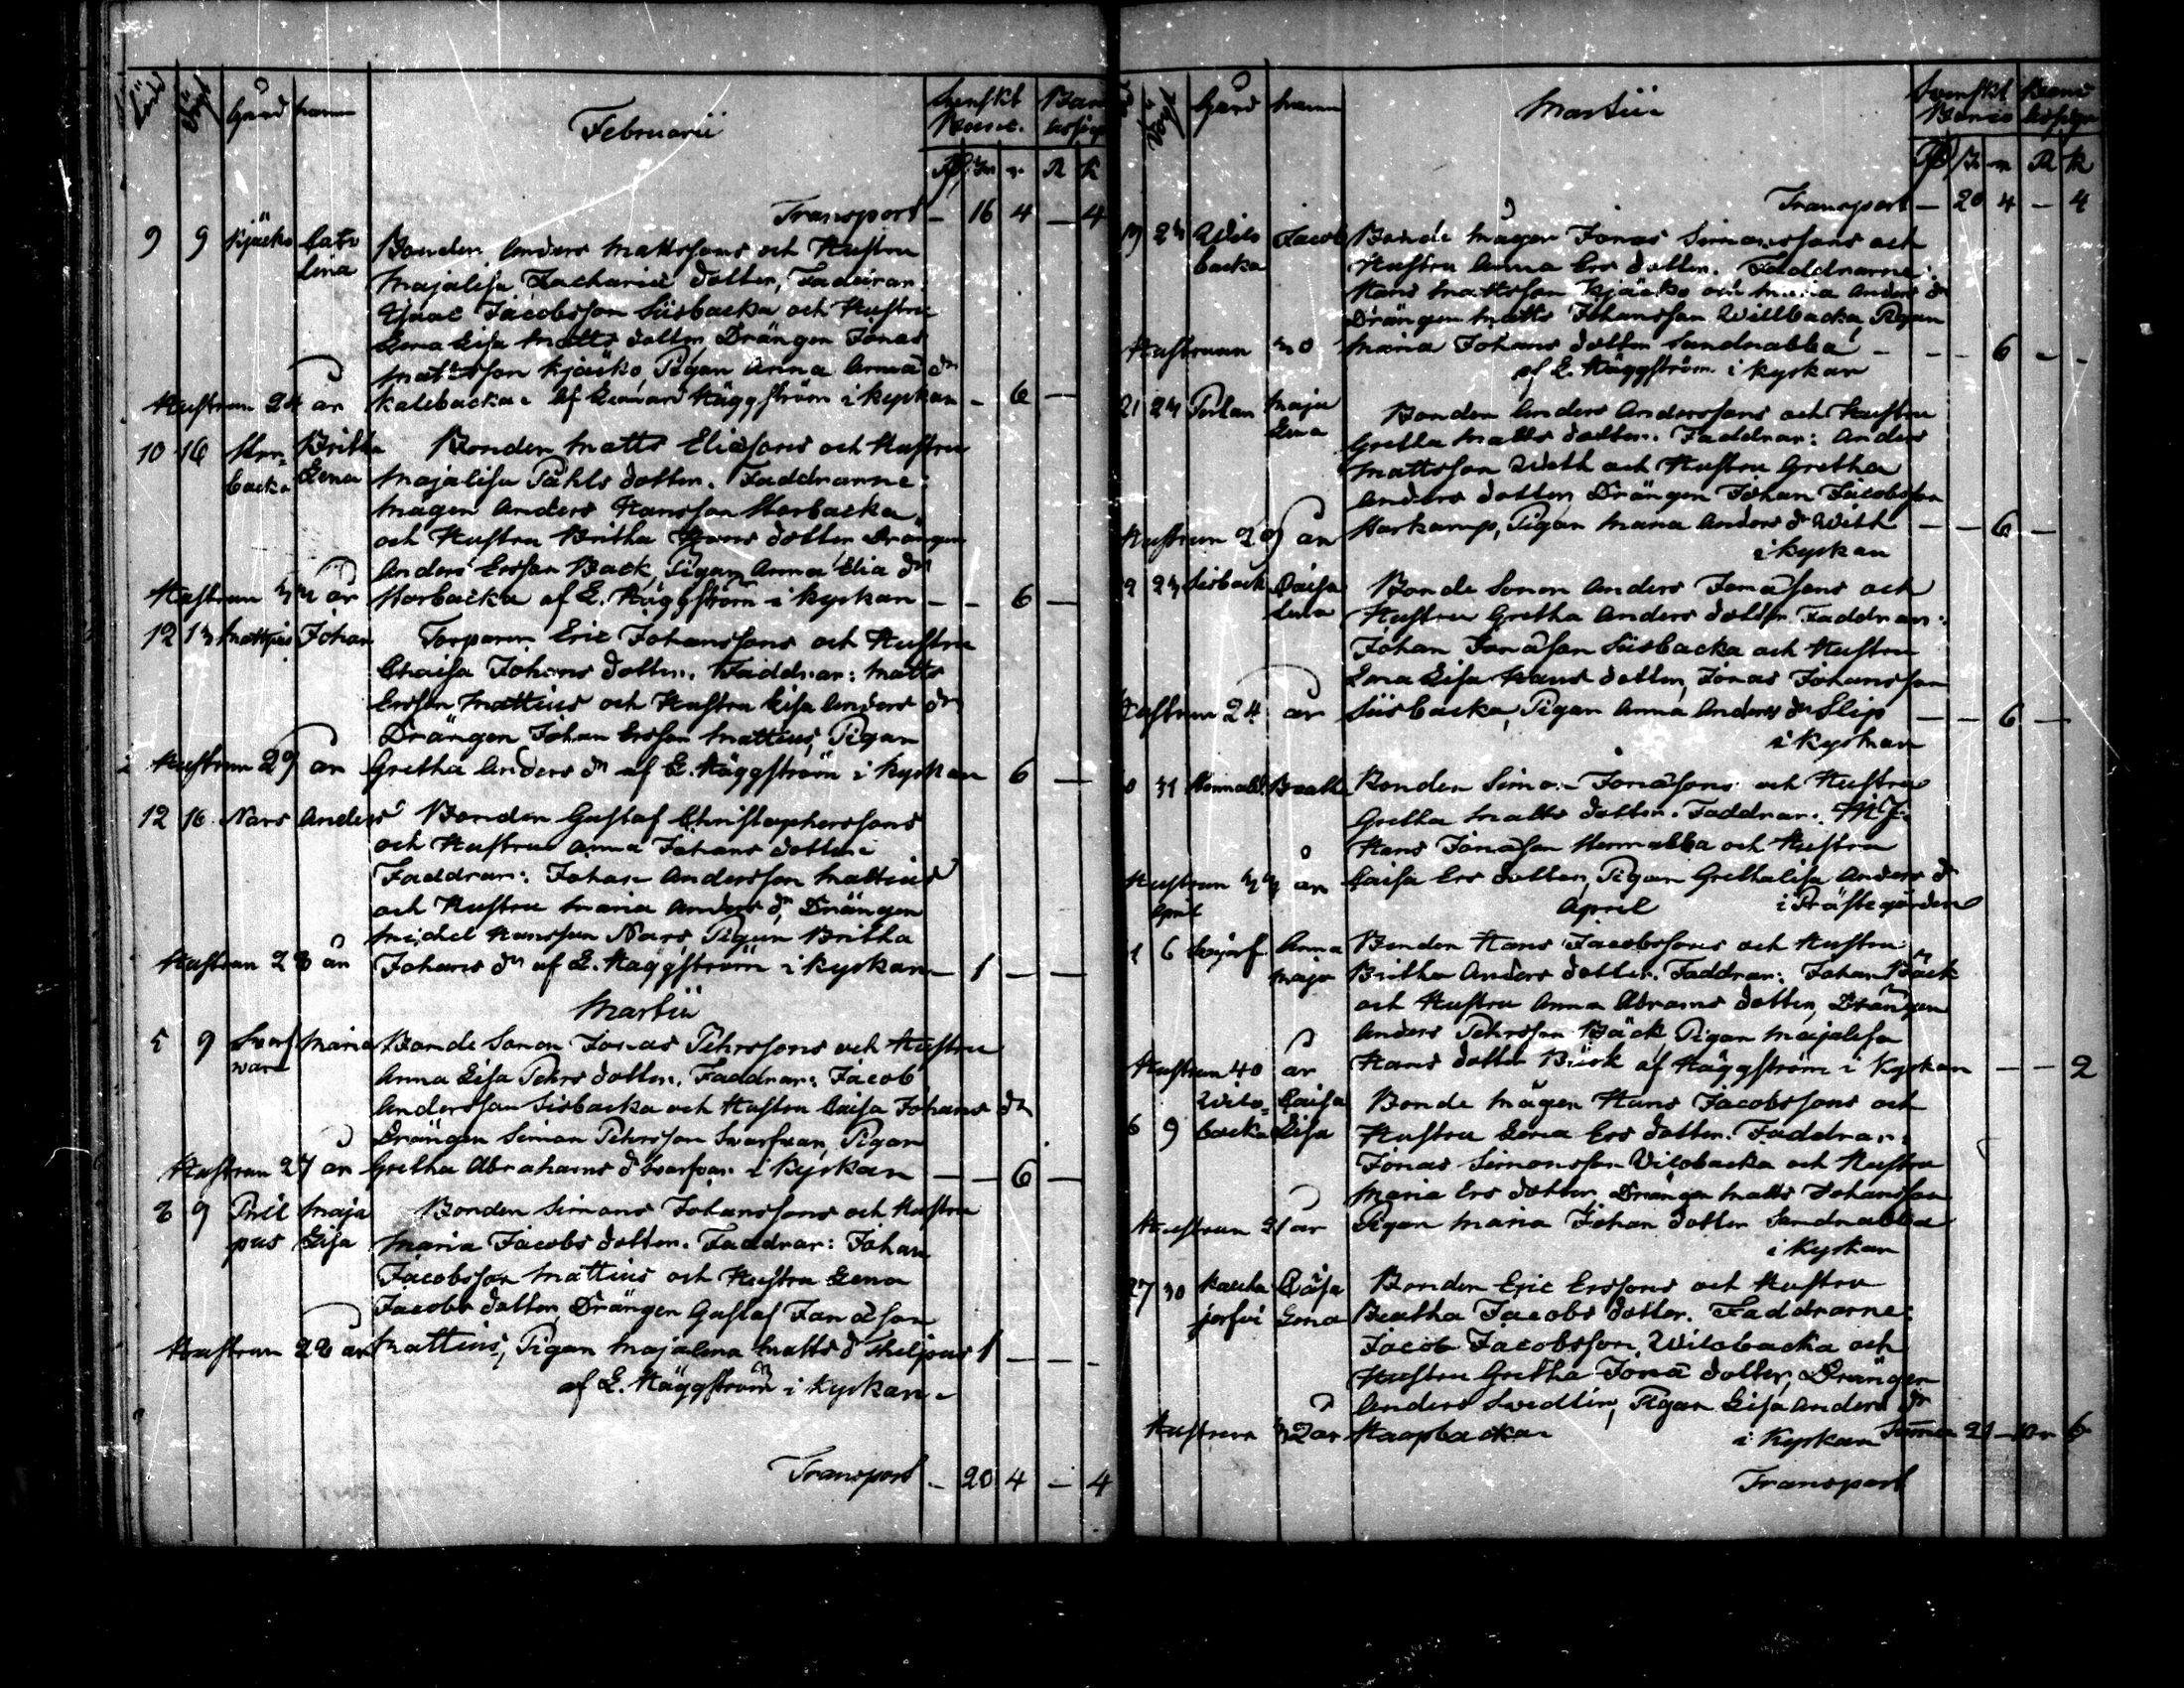 Född Döpt Gård namn Februarii Svenskt Banco. Banco assign
Rd sk r. R k
Transport - 16 4 - 4
9 9 Kjäcko Catr Bonden Anders Mattssons och Hustru
lina Majalisa Zachariæ dotter, Faddrar:
Isaac Jacobsson Sisbacka och Hustru
Lena Lisa Matts dotter, Drängen Jonas
Mattsson Kjäcko, Pigan Anna Anna dr
Hustrun 24 år Kalebacka af Leonard Häggström i kyrkan - 6 -
10 16 Stor= Britha Bonden Matts Eliasons och Hustru
backa Lena Majalisa Påhls dotter. Faddrarne:
Mågen Anders Hansson Storbacka
och Hustru Britha Hans dotter Drängen
Anders Ersson Back, Pigan Anna Elia dr
Hustrun år Storbacka af L. Häggström i kyrkan - - 6 -
12 13 Mattjus Johan Torparen Eric Johanssons och Hustru
Chaisa Johans dotter. Faddrar: Matts
Ersson Mattius och Hustru Lisa Anders dr
Drängen Johan Ersson Mattius, Pigan
Hustrun 29 år Gretha Anders dr af L. Häggström i kyrkan 6 -
12 16 Nars Anders Bonden Gustaf Christopherssons
och Hustru Anna Johans dotter
Faddrar: Johan Andersson Mattius
och Hustru Maria Anders dr, Drängen
Michel Hansson Nars, Pigan Britha
Hustrun 28 år Johans dr af L. Häggström i kyrkan - 1 - -
Martii
5 9 Svarf Maria Bonde Sonen Jonas Pehrssons och Hustru
war Anna Lisa Pehrs dotter. Faddrar: Jacob
Andersson Sisbacka och Hustru Caisa Johans dr
Drängen Simon Pehrsson Svarfvar, Pigan
Hustrun 27 år Gretha Abrahams d Svarfvar i kyrkan - - 6 -
8 9 Phil Maja Bonden Simons Johanssons och Hustru
pus Lisa Maria Jacobs dotter. Faddrar: Johan
Jacobsson Mattius och Hustru Lena
Jacobs dotter, Drängen Gustaf Jonæson
Hustrun 28 år Mattius, Pigan Majalena Matts d Philpus 1 - - -
af L. Häggström i kyrkan
Transport - 20 4 - 4
Döpt Gård namn Martii Svenskt Banco Banco assign
Rd sk r R k
Transport - 20 4 - 4
23 Wilo Jacob Bonde Mågen Jonas Simonssons och
backa Hustru Anna Ers dotter. Faddrarne:
Hans Mattsson Kjäcko och Maria Anders dr
Drängen Matts Johansson Willbacka, Pigan
Hustrun 30 Maria Johans dotter Sandnabba - - - 6 - -
af L. Häggström i kyrkan
21 23 Portan Maja Bonden Anders Anderssons och Hustru
Lena Gretha Matts dotter. Faddrar: Anders
Mattsson Witt och Hustru Gretha
Anders dotter, Drängen Johan Jacobsson
Hustrun 29 år Storkamp, Pigan Maria Anders dr Witt - - 6 -
i kyrkan
23 Sisback Caisa Bonde Sonen Anders Jonæsons och
Lena Hustru Gretha Anders dotter. Faddrar:
Johan Jonæson Sisbacka och Hustru
Lena Lisa Hans dotter, Jonas Johansson
Hustrun 24 år Sisbacka, Pigan Anna Anders dr Slip - - 6 -
i kyrkan
31 Beatha Bonden Simon Jonæsons och Hustru
Gretha Matts dotter. Faddrar:
Hans Jonæson och Hustru
Hustrun år Caisa Ers dotter, Pigan Grethalisa Anders d
April April i Prästegården
1 6 Anna Bonden Hans Jacobssons och Hustru
Maja Britha Anders dotter. Faddrar: Johan Bäck
och Hustru Anna Abrams dotter, Drängen
Anders Pehrsson Bäck, Pigan Majalisa
Hustrun 40 år Hans dotter Bäck af Häggström i Kyrkan - - 2
Wilo= Caisa Bonde Mågen Hans Jacobssons och
6 9 backa Lisa Hustru Lena Ers dotter. Faddrar:
Jonas Simonsson Wilobacka och Hustru
Maria Ers dotter, Drängen Matts Johansson
Hustrun 21 år Pigan Maria Johan dotter Sandnabba
i kyrkan
27 30 Caisa Bonden Eric Erssons och Hustru
jerfvi Lena Beatha Jacobs dotter. Faddrarne:
Jacob Jacobsson, Wilobacka och
Hustru Gretha Jonæ dotter, Drängen
Anders Svedlin, Pigan Lisa Anders dr
Hustrun 32 år Haapbacka i Kyrkan Summa 21 6
Transport